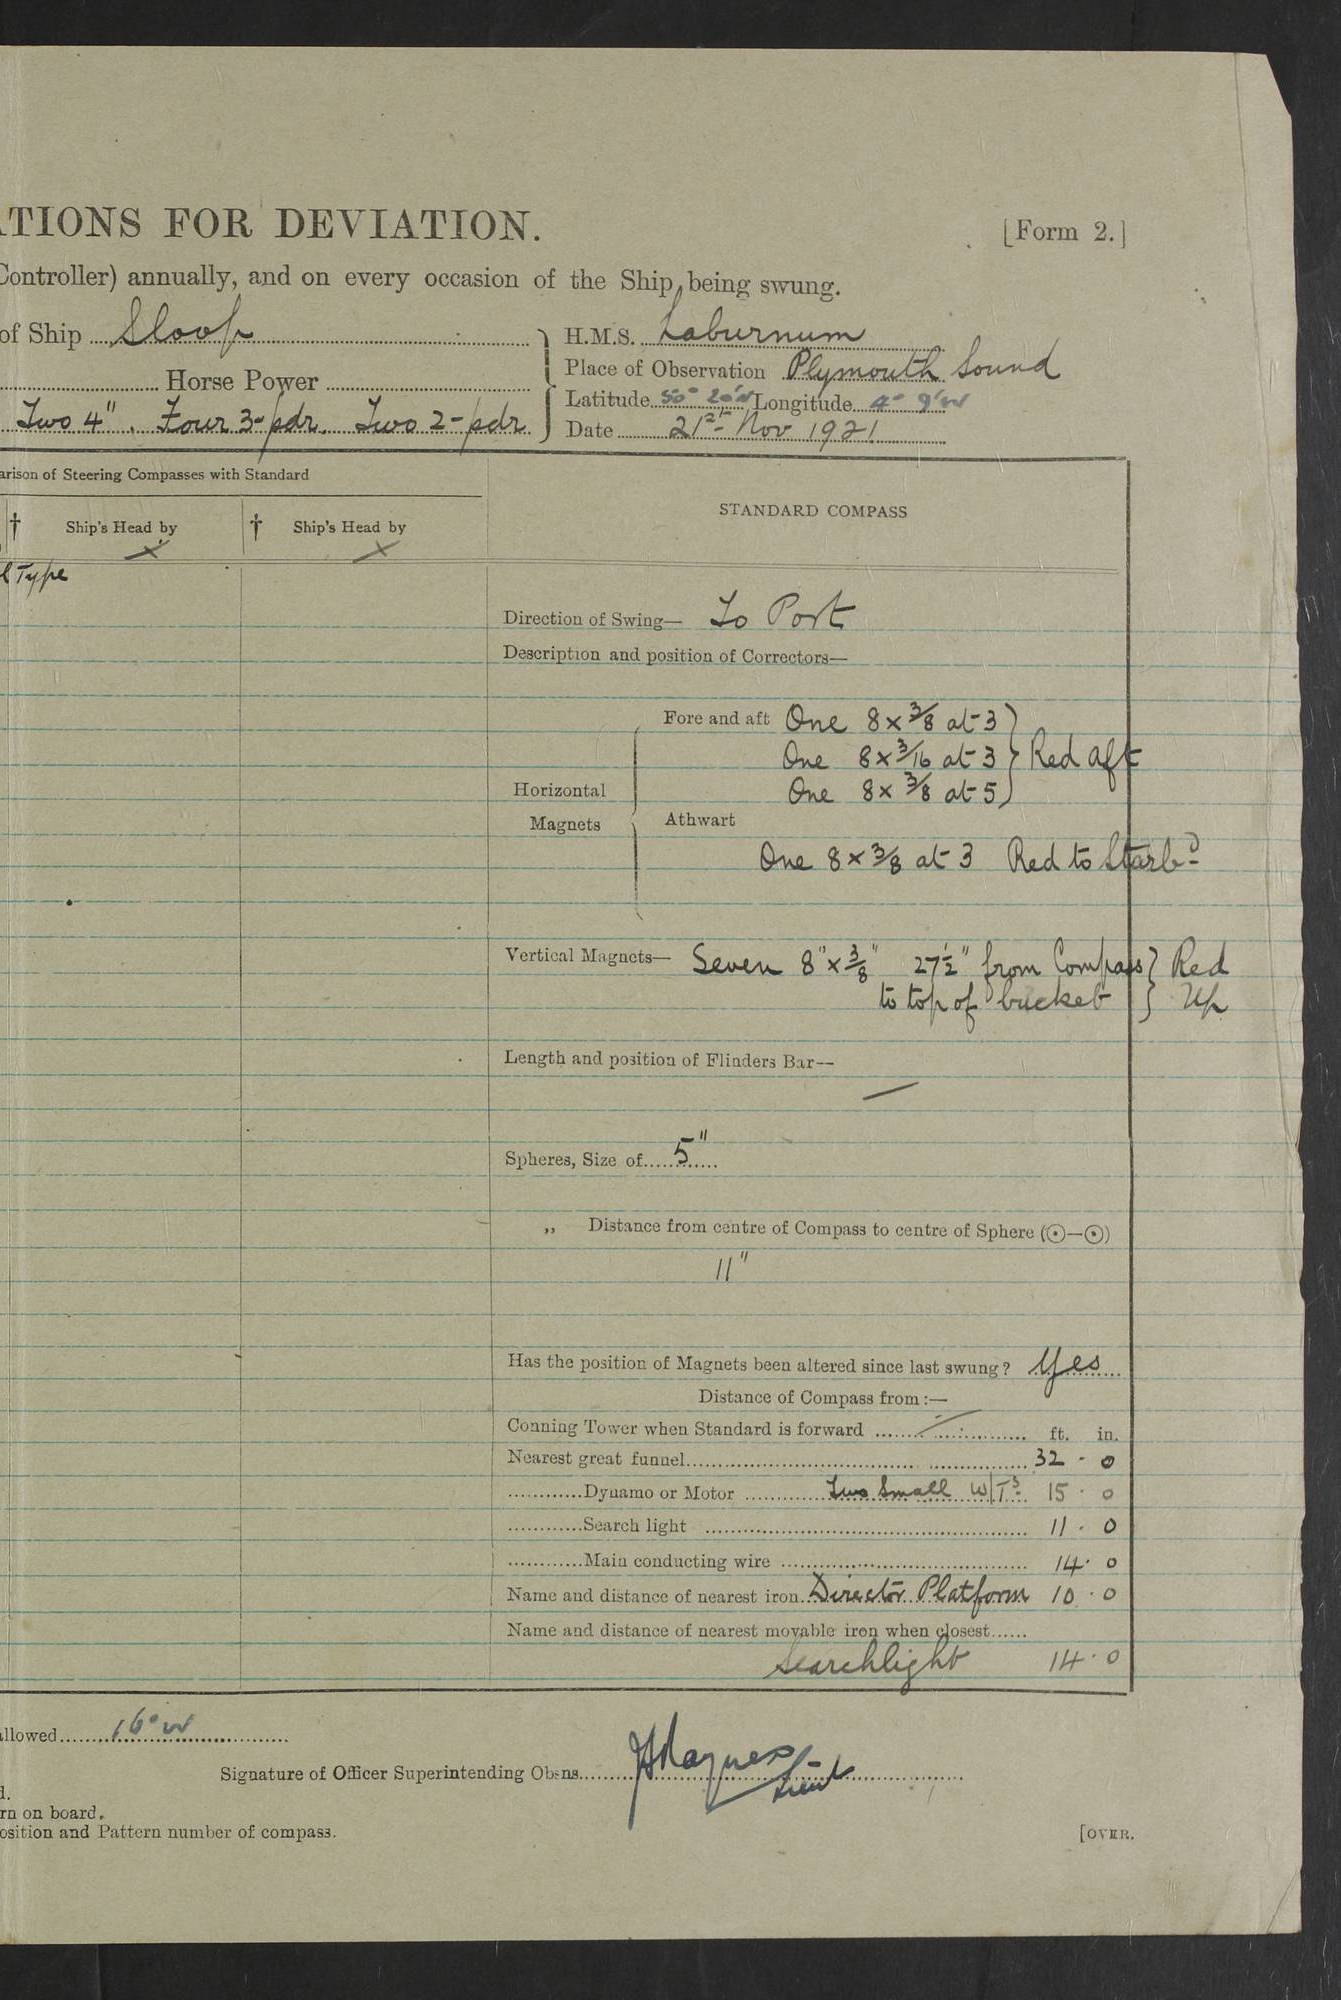 ATIONS FOR DEVIATION. [Form 2.]
Controller) annually, and on every occasion of the Ship being swung.
of Ship Sloop
H.M.S. Laburnum
Place of Observation Plymouth Sound
Horse Power
Latitude 50° 20'N Longitude 4° 9'W
Two 4". Four 3-pdr. Two 2-pdr.
Date 21st Nov 1921
arison of Steering Compasses with Standard
STANDARD COMPASS
† Ship's Head by † Ship's Head by
× ×
l Type
Direction of Swing— To Port
Description and position of Correctors—
Fore and aft One 8 × 3/8 at 3
One 8 × 3/16 at 3 } Red aft
Horizontal One 8 × 3/8 at 5
Magnets Athwart
One 8 × 3/8 at 3 Red to Starbd
Vertical Magnets— Seven 8" × 3/8" 27½" from Compass } Red
to top of bucket } Up
Length and position of Flinders Bar—
—
Spheres, Size of 5"
„ Distance from centre of Compass to centre of Sphere (⊙—⊙)
11"
Has the position of Magnets been altered since last swung? Yes
Distance of Compass from:—
Conning Tower when Standard is forward — ft. in.
Nearest great funnel 32 - 0
Dynamo or Motor Two Small W/Ts 15 · 0
Search light 11 · 0
Main conducting wire 14 · 0
Name and distance of nearest iron Director Platform 10 · 0
Name and distance of nearest movable iron when closest
Searchlight 14 · 0
allowed 16° W
Signature of Officer Superintending Obsns. Lieut
d.
rn on board.
osition and Pattern number of compass.
[OVER.